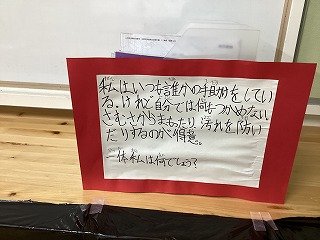 私はいつも誰かの手助けをしてい
る。けれど自分では何もつかめない
さむさからまもたり汚れを防い
だりするのが得意。
一体私は何でしょう？